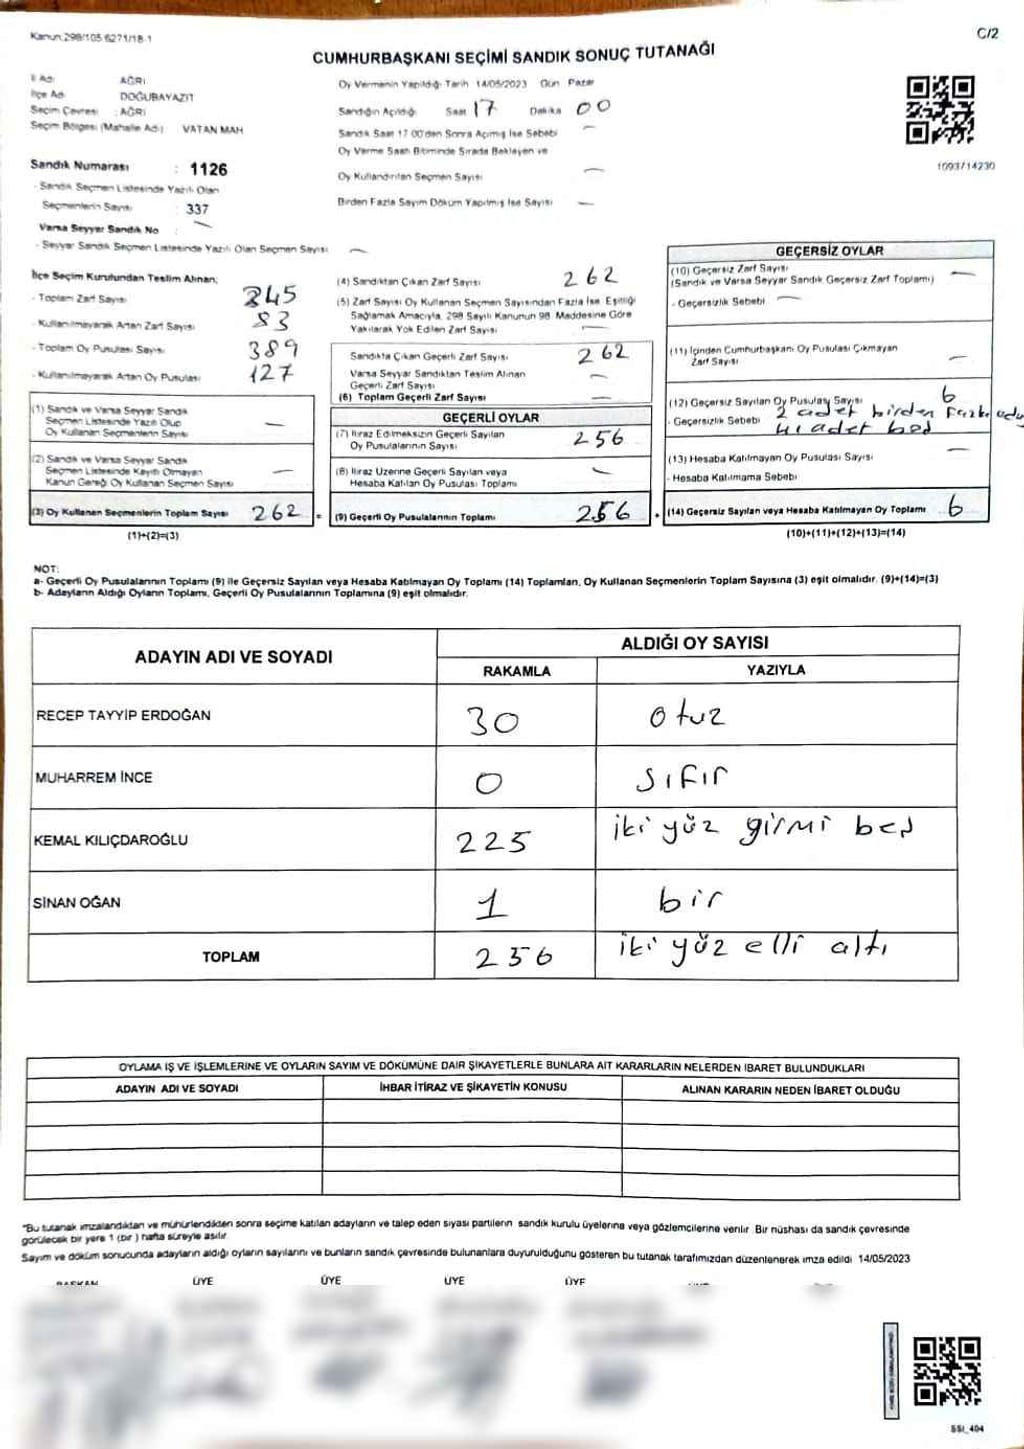 Kanun:298/105 6271/18-1
C/2
CUMHURBAŞKANI SEÇİMİ SANDIK SONUÇ TUTANAĞI
İl Adı AĞRI
İlçe Adı DOĞUBAYAZIT
Seçim Çevresi : AĞRI
Seçim Bölgesi (Mahalle Adı) VATAN MAH
Oy Vermenin Yapıldığı Tarih 14/05/2023 Gün Pazar
Sandığın Açıldığı Saat 17 Dakika 00
Sandık Saat 17 00'den Sonra Açımış İse Sebebi —
Oy Verme Saati Bitiminde Sırada Bekleyen ve
Oy Kullandırılan Seçmen Sayısı —
Birden Fazla Sayım Döküm Yapılmış İse Sayısı —
1093714230
Sandık Numarası : 1126
- Sandık Seçmen Listesinde Yazılı Olan
Seçmenlerin Sayısı : 337
Varsa Seyyar Sandık No : —
- Seyyar Sandık Seçmen Listesinde Yazılı Olan Seçmen Sayısı —
İlçe Seçim Kurulundan Teslim Alınan;
- Toplam Zarf Sayısı 345
- Kullanılmayarak Artan Zarf Sayısı 83
- Toplam Oy Pusulası Sayısı 389
- Kullanılmayarak Artan Oy Pusulası 127
(1) Sandık ve Varsa Seyyar Sandık
Seçmen Listesinde Yazılı Olup
Oy Kullanan Seçmenlerin Sayısı —
(2) Sandık ve Varsa Seyyar Sandık
Seçmen Listesinde Kayıtlı Olmayan
Kanun Gereği Oy Kullanan Seçmen Sayısı —
(3) Oy Kullanan Seçmenlerin Toplam Sayısı 262 =
(1)+(2)=(3)
(4) Sandıktan Çıkan Zarf Sayısı 262
(5) Zarf Sayısı Oy Kullanan Seçmen Sayısından Fazla İse, Eşitliği
Sağlamak Amacıyla, 298 Sayılı Kanunun 98. Maddesine Göre
Yakılarak Yok Edilen Zarf Sayısı —
Sandıkta Çıkan Geçerli Zarf Sayısı 262
Varsa Seyyar Sandıktan Teslim Alınan
Geçerli Zarf Sayısı —
(6) Toplam Geçerli Zarf Sayısı —
GEÇERLİ OYLAR
(7) İtiraz Edilmeksizin Geçerli Sayılan
Oy Pusulalarının Sayısı 256
(8) İtiraz Üzerine Geçerli Sayılan veya
Hesaba Katılan Oy Pusulası Toplamı —
(9) Geçerli Oy Pusulalarının Toplamı 256 +
GEÇERSİZ OYLAR
(10) Geçersiz Zarf Sayısı
(Sandık ve Varsa Seyyar Sandık Geçersiz Zarf Toplamı) —
- Geçersizlik Sebebi —
(11) İçinden Cumhurbaşkanı Oy Pusulası Çıkmayan
Zarf Sayısı —
(12) Geçersiz Sayılan Oy Pusulası Sayısı 6
- Geçersizlik Sebebi 2 adet birden
adet
(13) Hesaba Katılmayan Oy Pusulası Sayısı —
- Hesaba Katılmama Sebebi
(14) Geçersiz Sayılan veya Hesaba Katılmayan Oy Toplamı 6
(10)+(11)+(12)+(13)=(14)
NOT:
a- Geçerli Oy Pusulalarının Toplamı (9) ile Geçersiz Sayılan veya Hesaba Katılmayan Oy Toplamı (14) Toplamları, Oy Kullanan Seçmenlerin Toplam Sayısına (3) eşit olmalıdır. (9)+(14)=(3)
b- Adayların Aldığı Oyların Toplamı, Geçerli Oy Pusulalarının Toplamına (9) eşit olmalıdır.
ADAYIN ADI VE SOYADI
ALDIĞI OY SAYISI
RAKAMLA YAZIYLA
RECEP TAYYİP ERDOĞAN 30 otuz
MUHARREM İNCE 0 sıfır
KEMAL KILIÇDAROĞLU 225 iki yüz girmi beş
SİNAN OĞAN 1 bir
TOPLAM 256 iki yüz elli altı
OYLAMA İŞ VE İŞLEMLERİNE VE OYLARIN SAYIM VE DÖKÜMÜNE DAİR ŞİKAYETLERLE BUNLARA AİT KARARLARIN NELERDEN İBARET BULUNDUKLARI
ADAYIN ADI VE SOYADI İHBAR İTİRAZ VE ŞİKAYETİN KONUSU ALINAN KARARIN NEDEN İBARET OLDUĞU
"Bu tutanak imzalandıktan ve mühürlendikten sonra seçime katılan adayların ve talep eden siyasi partilerin sandık kurulu üyelerine veya gözlemcilerine verilir. Bir nüshası da sandık çevresinde
görülecek bir yere 1 (bir ) hafta süreyle asılır.
Sayım ve döküm sonucunda adayların aldığı oyların sayılarını ve bunların sandık çevresinde bulunanlara duyurulduğunu gösteren bu tutanak tarafımızdan düzenlenerek imza edildi 14/05/2023
BAŞKAN ÜYE ÜYE ÜYE ÜYE
SSI_404